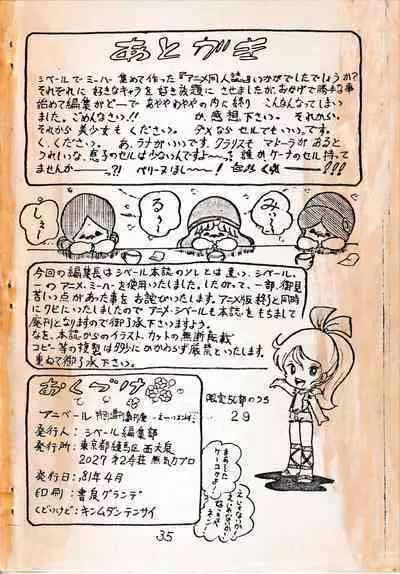 あとがき
シベールでミーハー集めて作った『アニメ同人誌』いかがでしたでしょうか?
それぞれに好きなキャラを好き放題にさせましたが、おかげで勝手な事
始めて編集がどーで あややわややの内に終り こんなんなってしまい
ました。ごめんなさい!! か、感想下さい。それから、
それから 美少女も ください。ダメなら セルでもいいです。
く、ください。あ、ラナがいいです、クラリスでも マドーラが あると
うれしいな、息子のセルは少ないんですよ〜っ? 誰かケーナのセル持って
ませんかー っ?! ペリーヌほしー!
しぇー
る〜
みぃ〜
今回の編集長はシベール本誌のソレとは違い、シベール
一のアニメ、ミーハーを使用いたしました。したがって、一部、御見
苦しい点があった事をお詫びいたします。アニメ版終了と同時
にクビにいたしましたので アニメ・シベールも本誌をもちまして
廃刊となりますので御了承下さいますよう。
なお、本誌からのイラスト、カットの無断転載
コピー等の複製は多少にかかわらず厳禁といたします。
重ねて御了承下さい。
おくづけ
アニベール
発行人:シベール編集部
発行所:東京都練馬区西大泉
2027 第2寿荘 無気力プロ
発行日:'81年4月
印刷:書良グランデ
くどいけど:キンムダンテンサイ
限定50部のうち
29
35